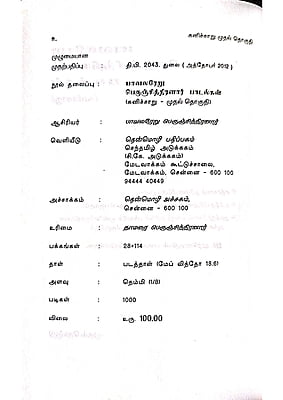 உ
கனிச்சாறு முதல் தொகுதி
முழுமையான
முதற்பதிப்பு : தி.பி. 2043, துலை (அக்தோபர் 2012)
நூல் தலைப்பு : பாவலரேறு
பெருஞ்சித்திரனார் பாடல்கள்
(கனிச்சாறு - முதல் தொகுதி)
ஆசிரியர் : பாவலரேறு பெருஞ்சித்திரனார்
வெளியீடு : தென்மொழி பதிப்பகம்
செந்தமிழ் அடுக்ககம்
(சி.கே. அடுக்ககம்)
மேடவாக்கம் கூட்டுச்சாலை,
மேடவாக்கம், சென்னை - 600 100
94444 40449
அச்சாக்கம் : தென்மொழி அச்சகம்,
சென்னை - 600 100
உரிமை : தாமரை பெருஞ்சித்திரனார்
பக்கங்கள் : 28+114
தாள் : படத்தாள் (மேப் வித்தோ 18.6)
அளவு : தெம்மி (1/8)
படிகள் : 1000
விலை : உரு. 100.00